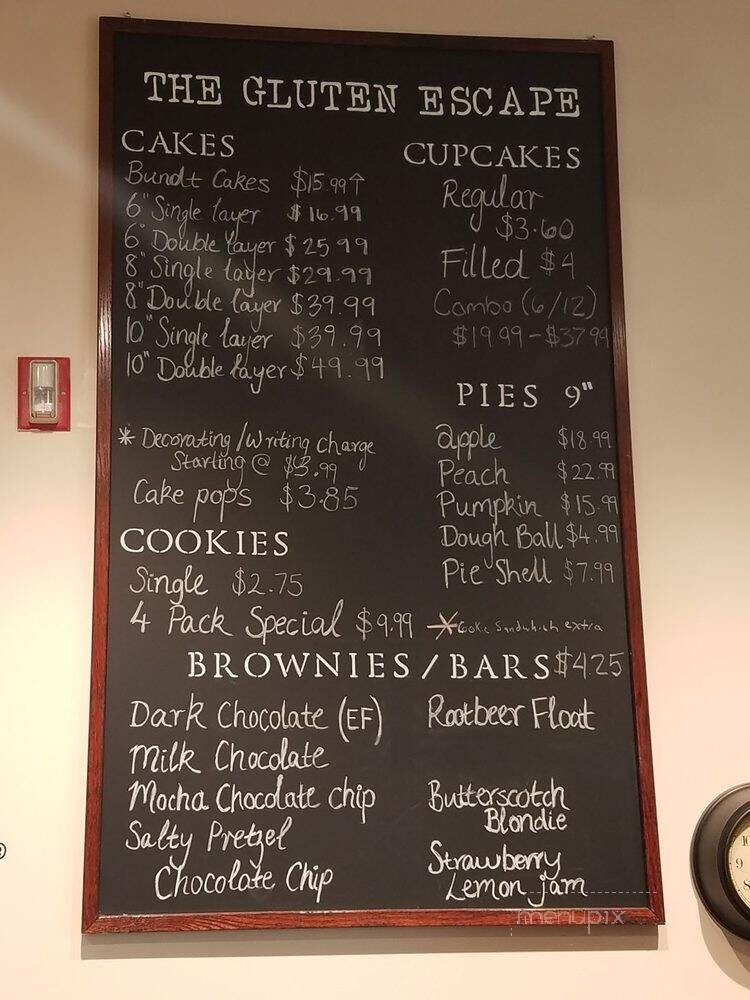 THE GLUTEN ESCAPE
CAKES
Bundt Cakes $15.99↑
6" Single layer $16.99
6" Double layer $25.99
8" Single layer $29.99
8" Double layer $39.99
10" Single layer $39.99
10" Double layer $49.99
* Decorating/Writing Charge
Starting @ $3.99
Cake pops $3.85
COOKIES
Single $2.75
4 Pack Special $9.99 * Sandwhich extra
CUPCAKES
Regular
$3.60
Filled $4
Combo (6/12)
$19.99-$37.99
PIES 9"
apple $18.99
Peach $22.99
Pumpkin $15.99
Dough Ball $4.99
Pie Shell $7.99
BROWNIES/BARS $4.25
Dark Chocolate (EF)
Milk Chocolate
Mocha Chocolate chip
Salty Pretzel
Chocolate Chip
Rootbeer Float
Butterscotch
Blondie
Strawberry
Lemon jam
menupix
10
9
8